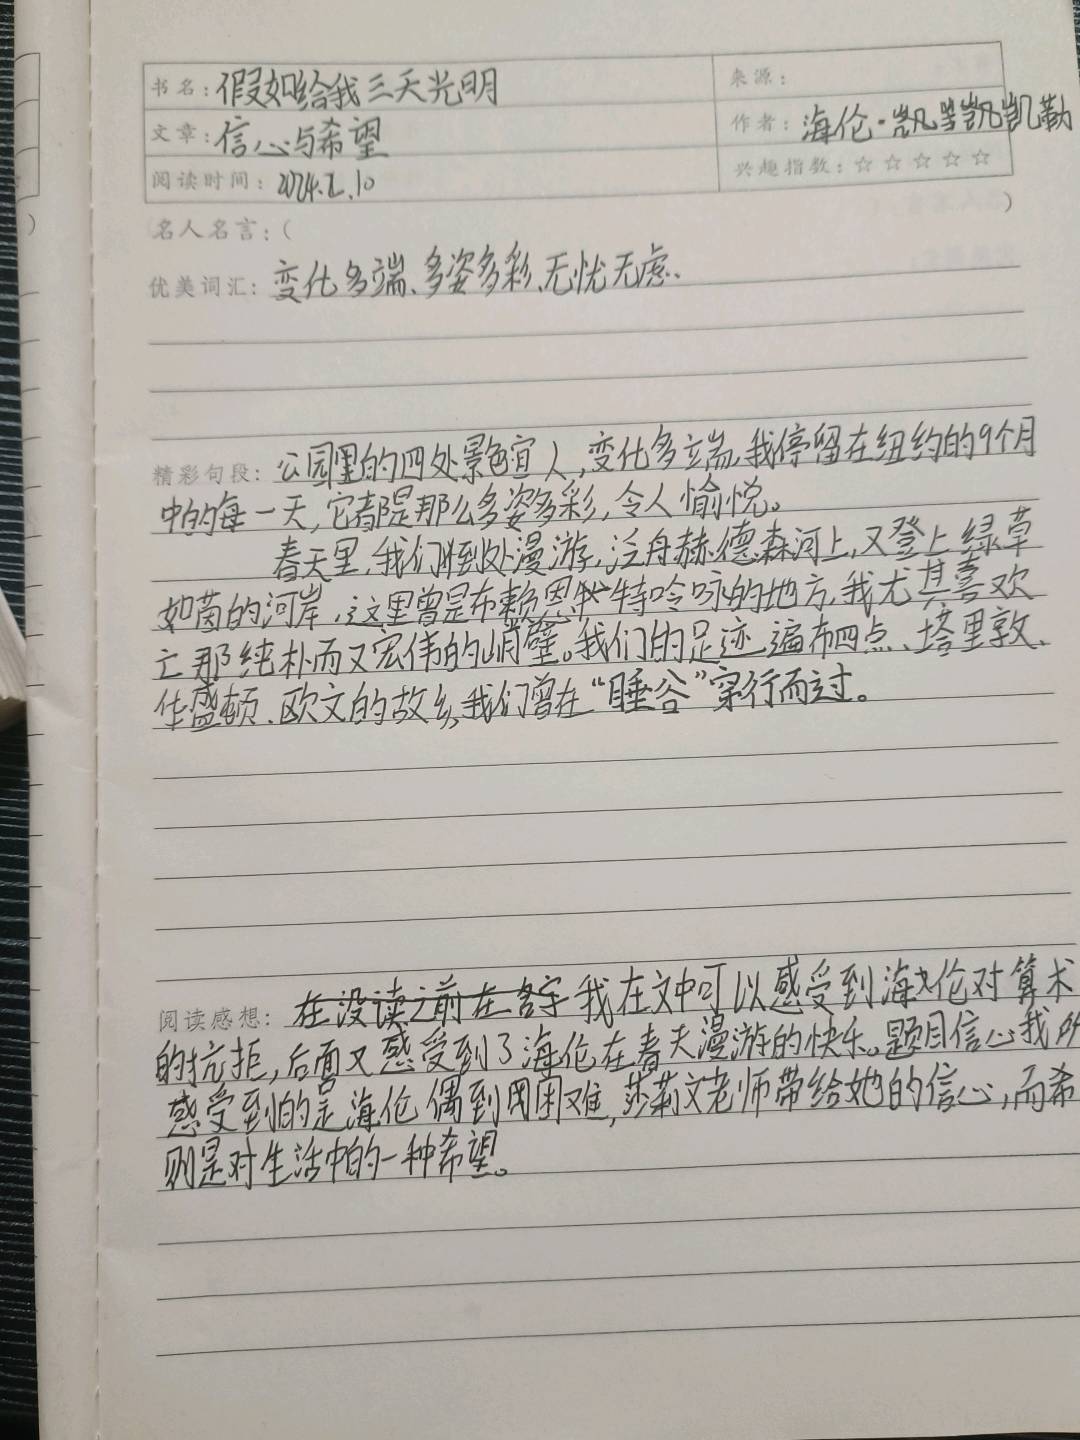 书名：假如给我三天光明
来源：
文章：信心与希望
作者：海伦·凯凯勒
阅读时间：2024.2.10
兴趣指数：☆☆☆☆☆
名人名言：（ ）
优美词汇：变化多端、多姿多彩、无忧无虑、
精彩句段：公园里的四处景色宜人，变化多端，我停留在纽约的9个月
中的每一天，它都是那么多姿多彩，令人愉悦。
春天里，我们到处漫游，泛舟赫德森河上，又登上绿草
如茵的河岸，这里曾是布赖恩特吟咏的地方，我尤其喜欢
它那纯朴而又宏伟的峭壁。我们的足迹遍布四点、塔里敦、
华盛顿、欧文的故乡，我们曾在“睡谷”穿行而过。
阅读感想：在没读之前在 我在文中可以感受到海伦对算术
的抗拒，后面又感受到了海伦在春天漫游的快乐。题目信心我所
感受到的是海伦偶到困难，莎莉文老师带给她的信心，而希
则是对生活中的一种希望。